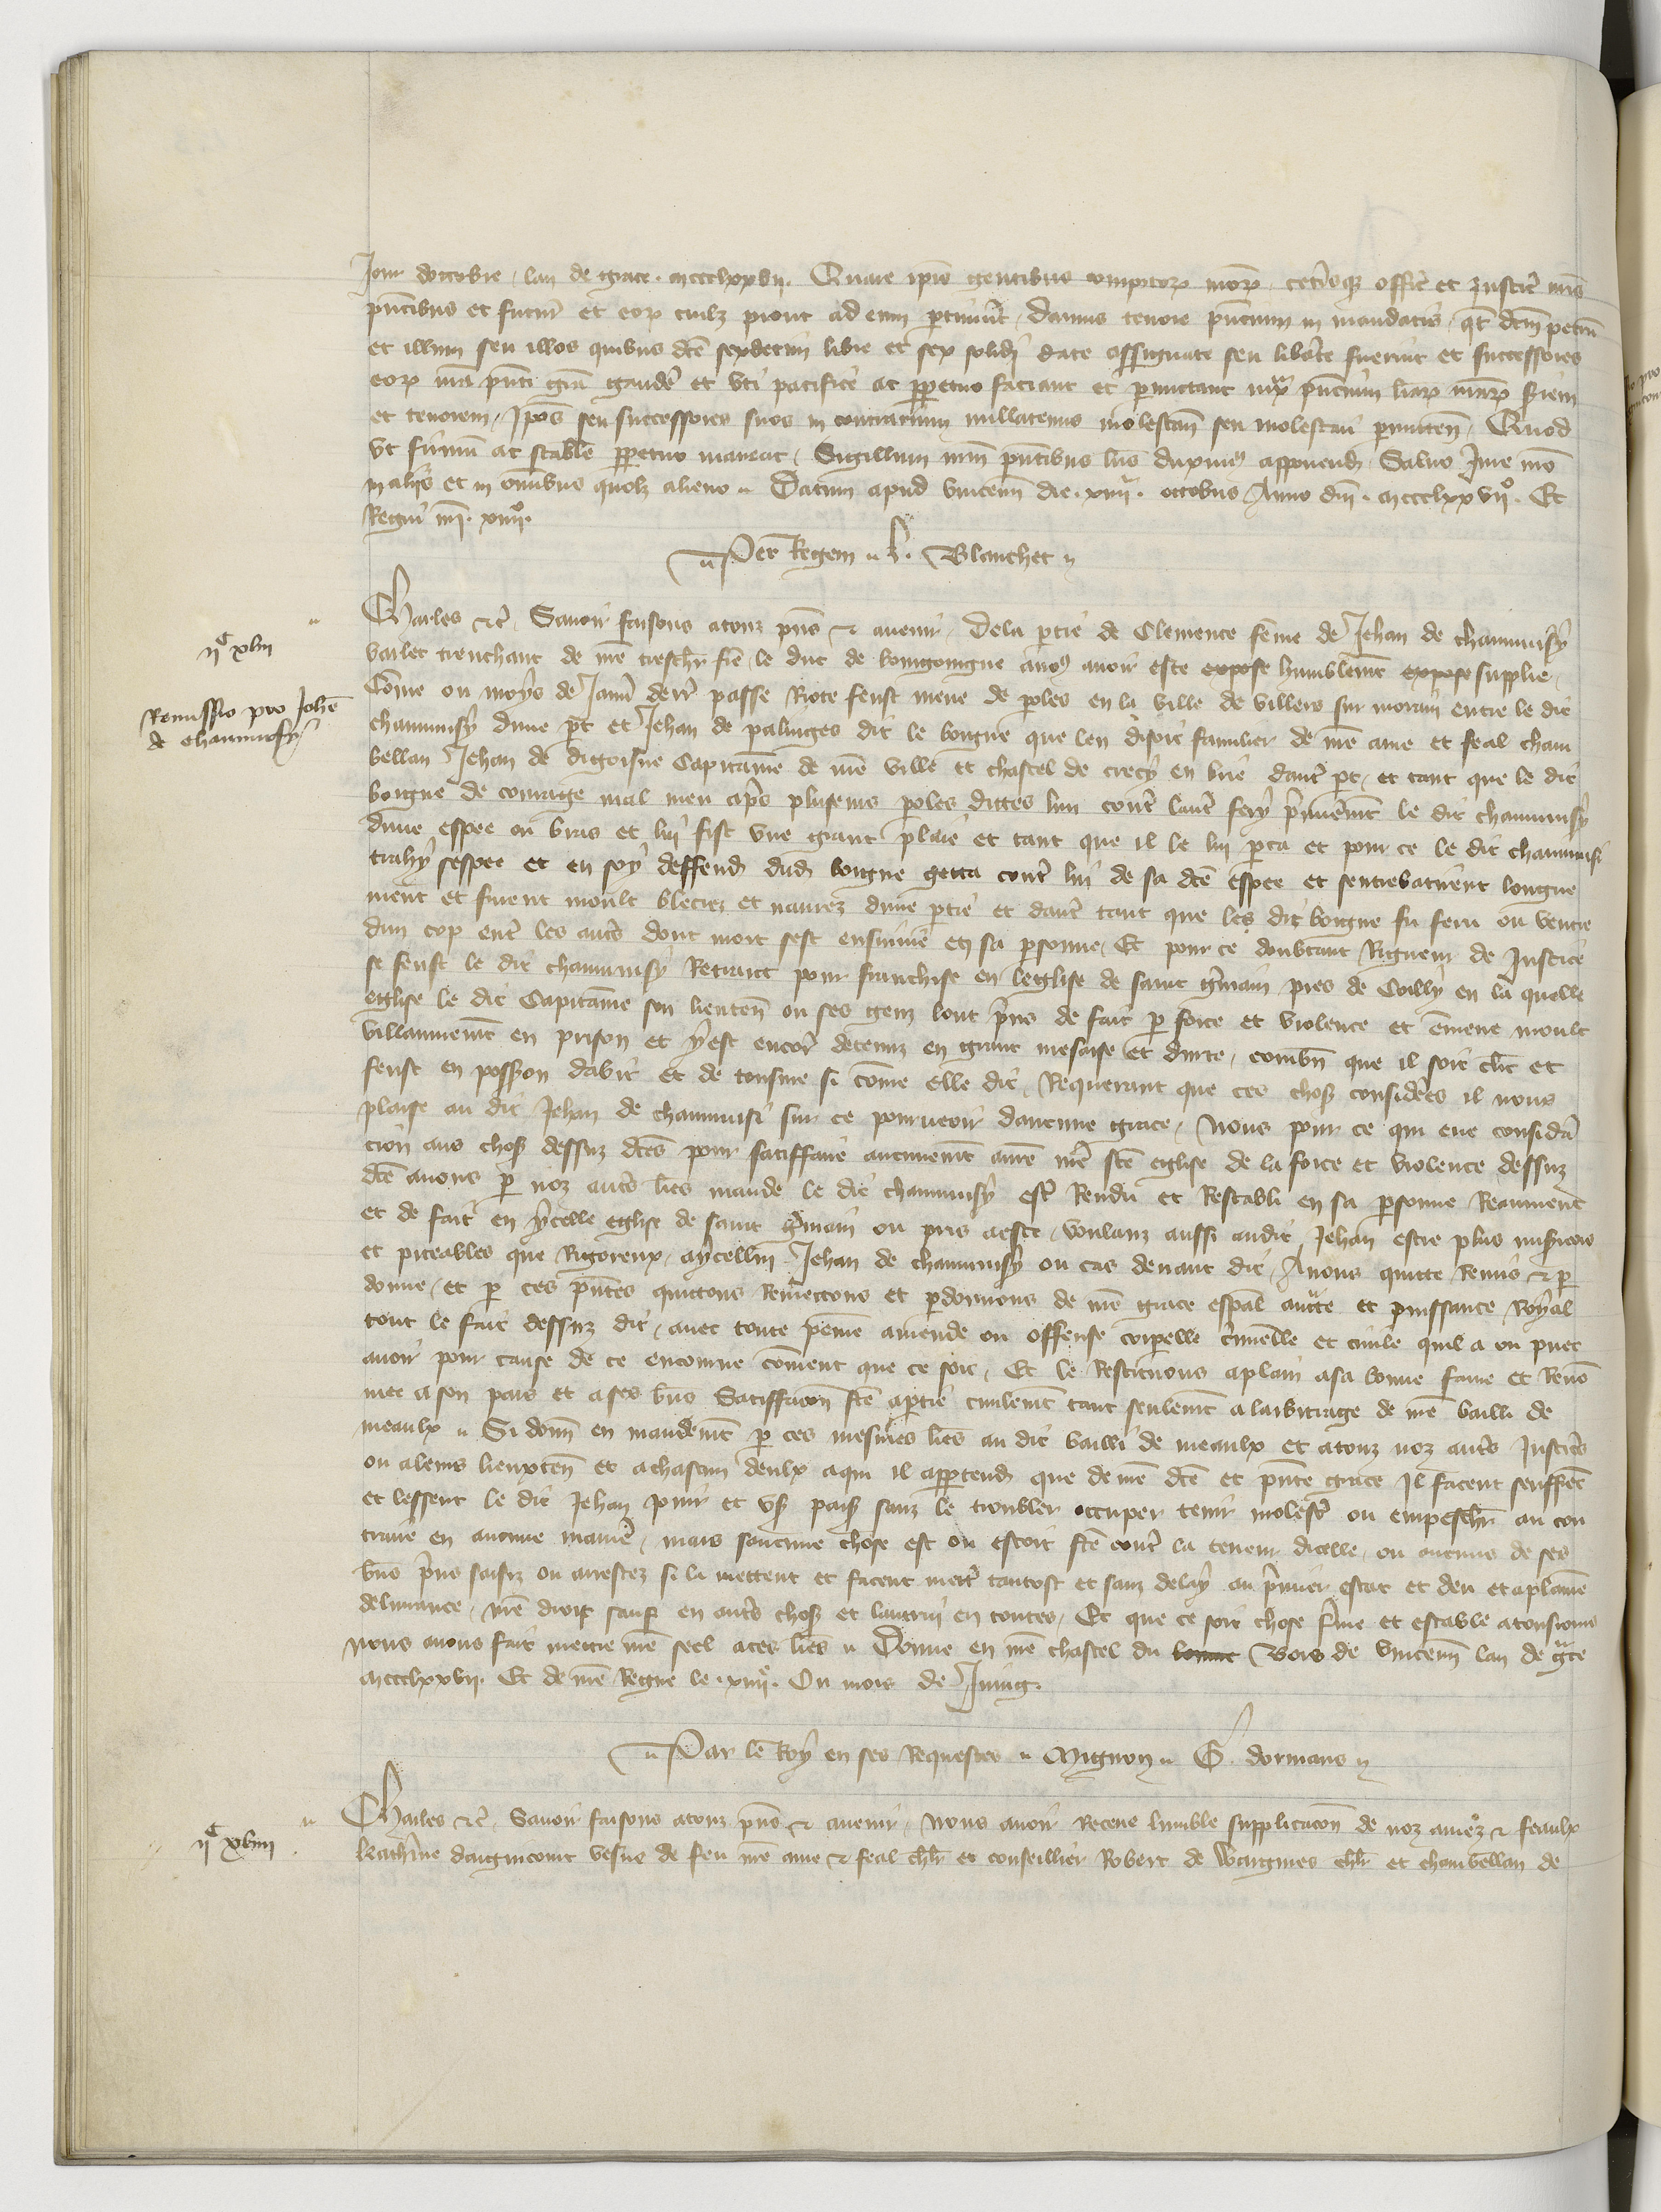 Jour doctobre, lan de grace. mccclxxvii. Quare ipīs gentibus compotoꝝ nrōꝝ ceteris qꝫ officīs et Justic̄ nrīs
pn̄tibus et futur̄ et eoꝝ cuilꝫ prout ad eum ptinuīt, Damus tenore pn̄cium in mandatis, qt̄ dcm̄ petrū
et illum seu illos quibus dcē sexdecim libre et sex solidi date assignate seu libate fuerint et successores
eoꝝ nrā pn̄ti grā gaudē et uti pacifice ac ppetuo faciant et pmittant iuxᵃ pn̄cium lrāꝝ nrāꝝ seriem
et tenorem, Ipōs seu successores suos in contrarium nullatenus molestan̄ seu molestari pmitten̄, Quod
ut firmū ac stabile ppetuo maneat, Sigillum nrm̄ pn̄tibus lrīs duximꝰ apponend, Salvo Jure nrō
in aliis et in om̄ibus quolꝫ alieno. Datum apud vincenn̄ die. xiiiiᵃ. octobris Anno dn̄i. mccclxxviiᵒ. Et
Regni nrī. xiiiiᵒ.
Per Regem. L. Blanchet
Charles etc̄. Savoir faisons a touz pn̄s et avenir, De la ptie de Clemence fēme de Jehan de chaumuisy
varlet trenchant de nrē treschr̄ frē le duc de bourgoingne a noꝰ avoir este expose humblemt̄ expose supplie,
Cōme ou moys de Janvi derr̄ passe Riote feust meue de ꝑoles en la ville de villers sur morain entre le dit
chaumuisy dune pt et Jehan de palinges dit le borgne que len disoit familier de nrē ame et feal cham
bellan Jehan de digoisne Capitaine de nrē ville et chastel de crecy en brie dautr̄ pt, et tant que le dit
borgne de courage mal meu apres plusieurs ꝑoles dittes lun contr̄ lautr̄ fery p̄mieremt̄ le dit chaumuisy
dune espee ou bras et luy fist une grant plaie et tant que il le lui pca et pour ce le dit chaumuisi
trahy sespee et en soy deffend dud borgne getta contr̄ lui de sa dcē espee et sentrebatirent longue
ment et furent moult bleciez et navrez dune ptie et dautr̄ tant que les dit borgne fu feru ou ventre
dun cop entr̄ les autrs dont mort sest ensuivie en sa psonne, Et pour ce doubtant Rigueur de Justice
se feust le dit chaumuisy Retrait pour franchise en leglise de saint ḡmain pres de Coilly en la quelle
eglise le dit Capitaine son lieuten̄ ou ses gens lont p̄ns de fait p force et violence et ēmene moult
villainnemt̄ en prison et y est encor̄ detenuz en grant mesaise et durte, combn̄ que il soit clr̄c et
feust en possion dabit et de tonsure si cōme elle dit, Requerant que ces choses considerees il nous
plaise au dit Jehan de chaumuisi sur ce pourveoir daucune grace, Nous pour ce qui eue considera
cion aus choses dessuz dcēs pour satiffaire aucunemt̄ a nrē mr̄e scē eglise de la force et violence dessuz
dcē avons p noz autrs lrēs mande le dit chaumuisy estr̄ Rendu et Restabli en sa psonne Reaument
et de fait en ycelle eglise de saint ḡmain ou pris a este, voulanz aussi audit Jehan estre plus misicors
et piteables que Rigoreux, a ycellui Jehan de chaumuisy ou cas devant dit, Avons quitte Remis et p
donne, et p ces pn̄tes quittons Remettons et pdonnons de nrē grace esp̄al auctte et puissance Royal
tout le fait dessuz dit, avec toute peine amende ou offense corpelle c̄minelle et civile quil a ou puet
avoir pour cause de ce encourue cōment que ce soit, Et le Restituons a plain a sa bonne fame et Renō
mee a son pais et a ses bn̄s Satiffacion fcē a ptie civilemt̄ tant seulemt̄ a larbitrage de nrē bailli de
meaulx. Si donn̄ en mandemt̄ p ces mesmes lrēs au dit bailli de meaulx et a touz noz autrs Justicrs
ou a leurs lieuxten̄ et a chascun deulx a qui il appartend que de nrē dcē et pn̄te grace Il facent seuffrēt
et lessent le dit Jehan Jouir et usr paisr sanz le troubler occuper tenir molestr̄ ou empeschr̄ au con
traire en aucune manie, mais saucune chose est ou estoit fcē contr̄ la teneur dicelle, ou aucuns de ses
bn̄s p̄ns saisiz ou arrestez si li mettent et facent mettr̄ tantost et sanz delay au p̄mier estat et deu et a plaine
delivrance, nrē droit sauf en autrs choses et lautrui en toutes, Et que ce soit chose f̄me et estable a tousiours
nous avons fait mettre nrē seel a ces lrēs. Donne en nrē chastel du bonne Bois de vincenn̄ lan de grᵃce
mccclxxvii. Et de nrē Regne le. xiiiiᵉ. Ou mois de Juing.
Par le Roy en ses Requestes. Mignon. G. dormans
Charles etc̄. Savoir faisons a touz pn̄s et avenir, Nous avoir Receue lumble supplicacion de noz amez et feaulx
katherine daigincourt vesve de feu nrē ame et feal chlr̄ et conseillier Robert de Wargnies chlr̄ et chambellan de
iiᶜ xlvii
Remissio pro Johe
de chaumuisy
iiᶜ xlviii